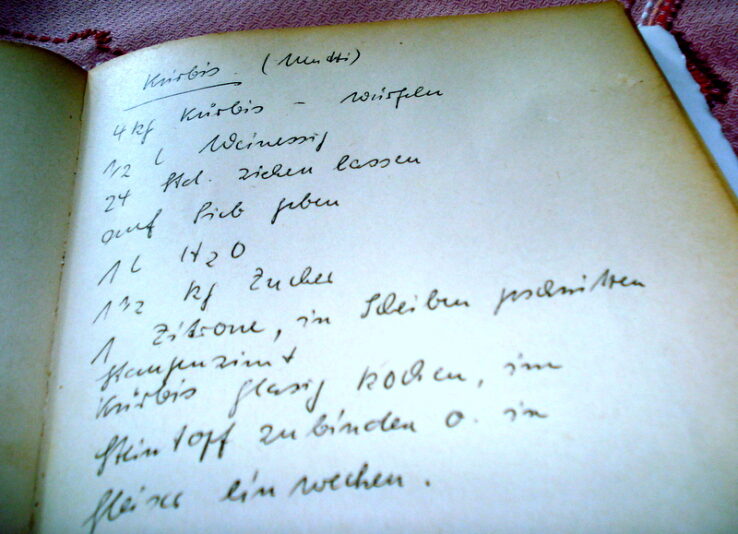 Kürbis (Mutti)
4 kg Kürbis - würfeln
1/2 l Weinessig
24 Std. ziehen lassen
auf Sieb geben
1 l H2O
1 1/2 kg Zucker
1 Zitrone, in Scheiben geschnitten
Stangenzimt
Kürbis glasig kochen, im
Steintopf zubinden o. in
Gläser einwecken.